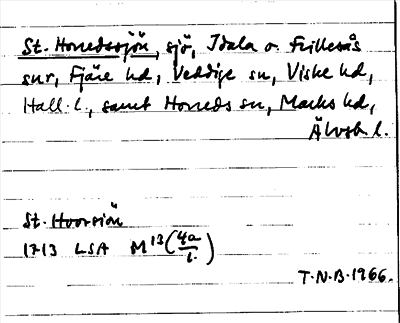 St. Horredssjön, sjö, Idala o. Frillesås
snr, Fjäre hd, Veddige sn, Viske hd,
Hall. l., samt Horreds sn, Marks hd,
Älvsb l.
St. Hoorsiön
1713 LSA M 13 (4a/1.)
T.N.B. 1966.